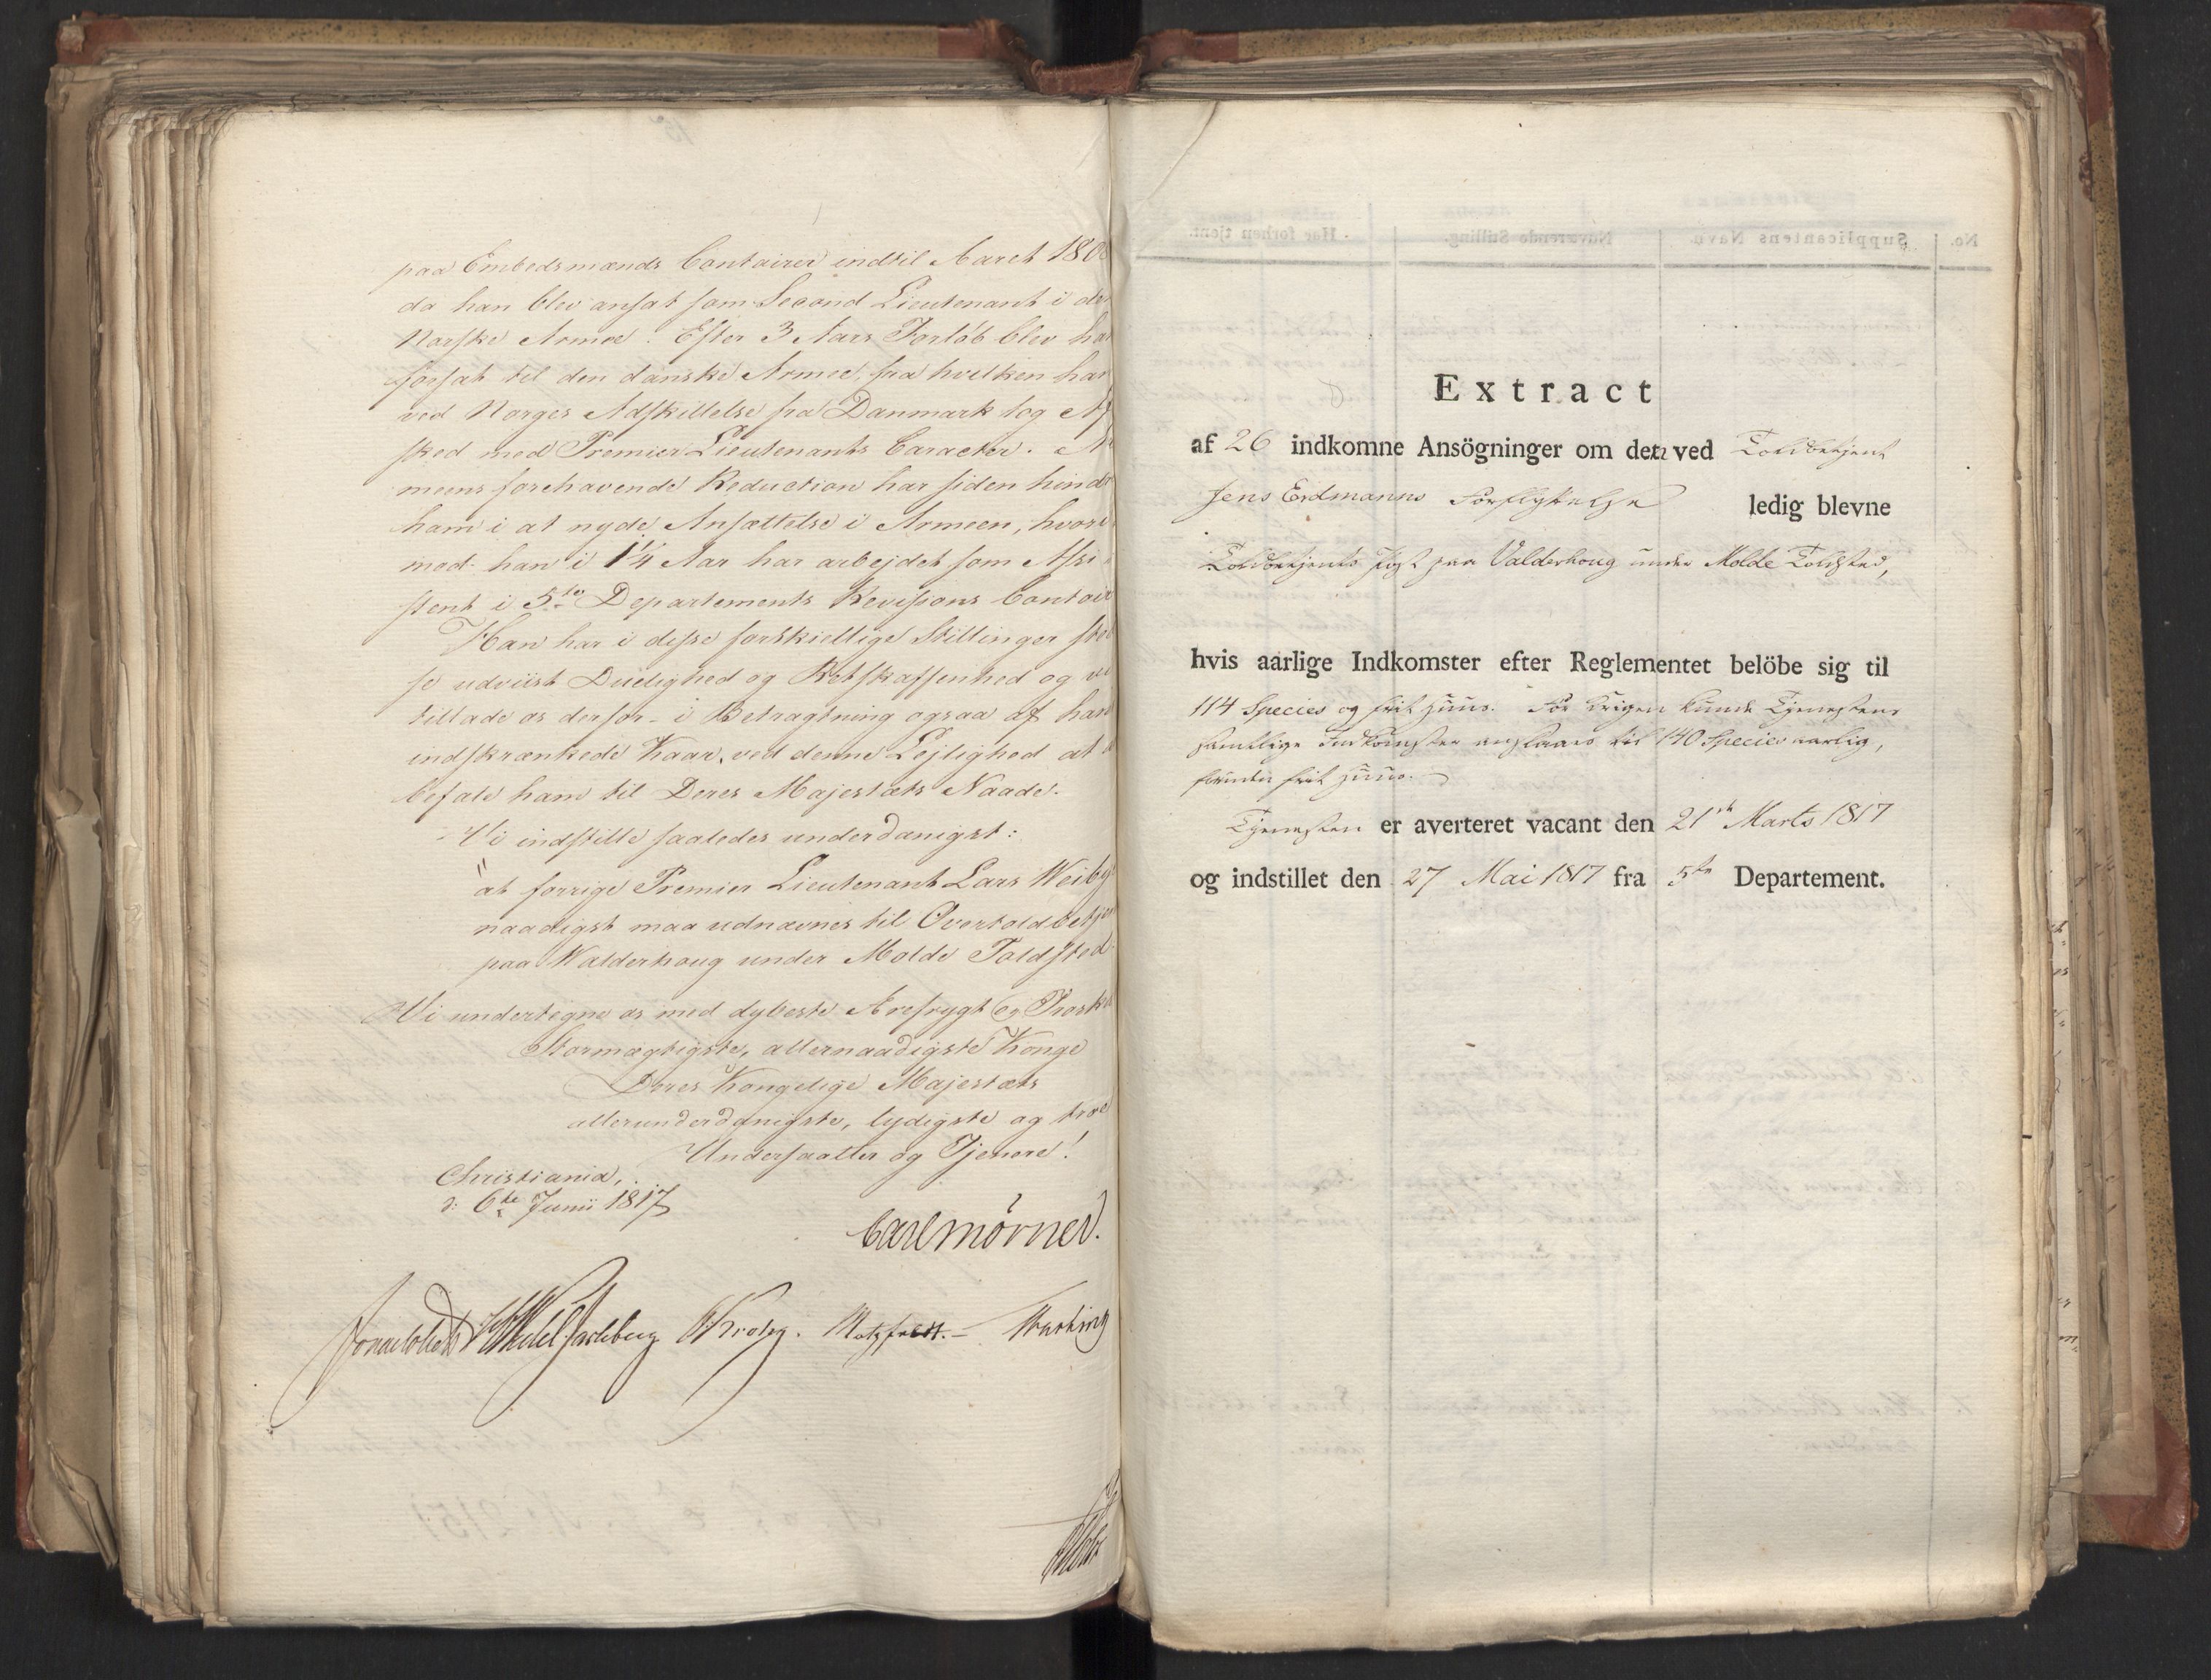 paa Embedsmænds Contoirer indtil Aaret 1808
da han blev ansat som Second Lieutenant i de
Norske Armee. Efter 3 Aars Forløb blev ha
forsat til den danske Armee, fra hvilken han
ved Norges Adskillelse fra Danmark tog Af
sked med Premier Lieutenants Caracter. A
meens forehavende Reduction har siden hindr
ham i at nyde Ansættelse i Armeen, hvori
mod han i 1¼ Aar har arbejdet som Assi
stent i 5te Departements Revisions Contoir
Han har i disse forskiellige Stillinger ste
se udviist Duelighed og Retskaffenhed og vi
tillade os derfor i Betragtning ogsaa af hans
indskrænkede Kaar, ved denne Lejlighed at
befale ham til Deres Majestæts Naade.
Vi indstille saaledes underdanigst:
"at forrige Premier Lieutenant Lars Weiby
naadigst maa udnævnes til Overtoldbetjen
paa Walderhoug under Molde Toldsted
Vi undertegne os med dybeste Ærefrygt og Troska
Stormægtigste, allernaadigste Konge
Deres Kongelige Majestæts
allerunderdanigste, lydigste og troe
Undersaatter og Tjenere!
Christiania,
d: 6te Junii 1817
Carl Mörner.
Jonas Collett Wedel Jarlsberg Krohg. Motzfeldt.
Extract
af 26 indkomne Ansögninger om den ved Toldbetjent
Jens Erdmanns Forflyttelse ledig blevne
Toldbetjents Post paa Valderhoug under Molde Toldsted,
hvis aarlige Indkomster efter Reglementet belöbe sig til
114 Species og frit Huus. Før Krigen kunde Tjenestens
samtlige Indkomster anslaaes til 140 Species aarlig,
foruden frit Huus.
Tjenesten er averteret vacant den 21de Marts 1817
og indstillet den 27 Mai 1817 fra 5te Departement.
No. Supplicantens Navn. Nuværende Stilling. Har forhen tjent.